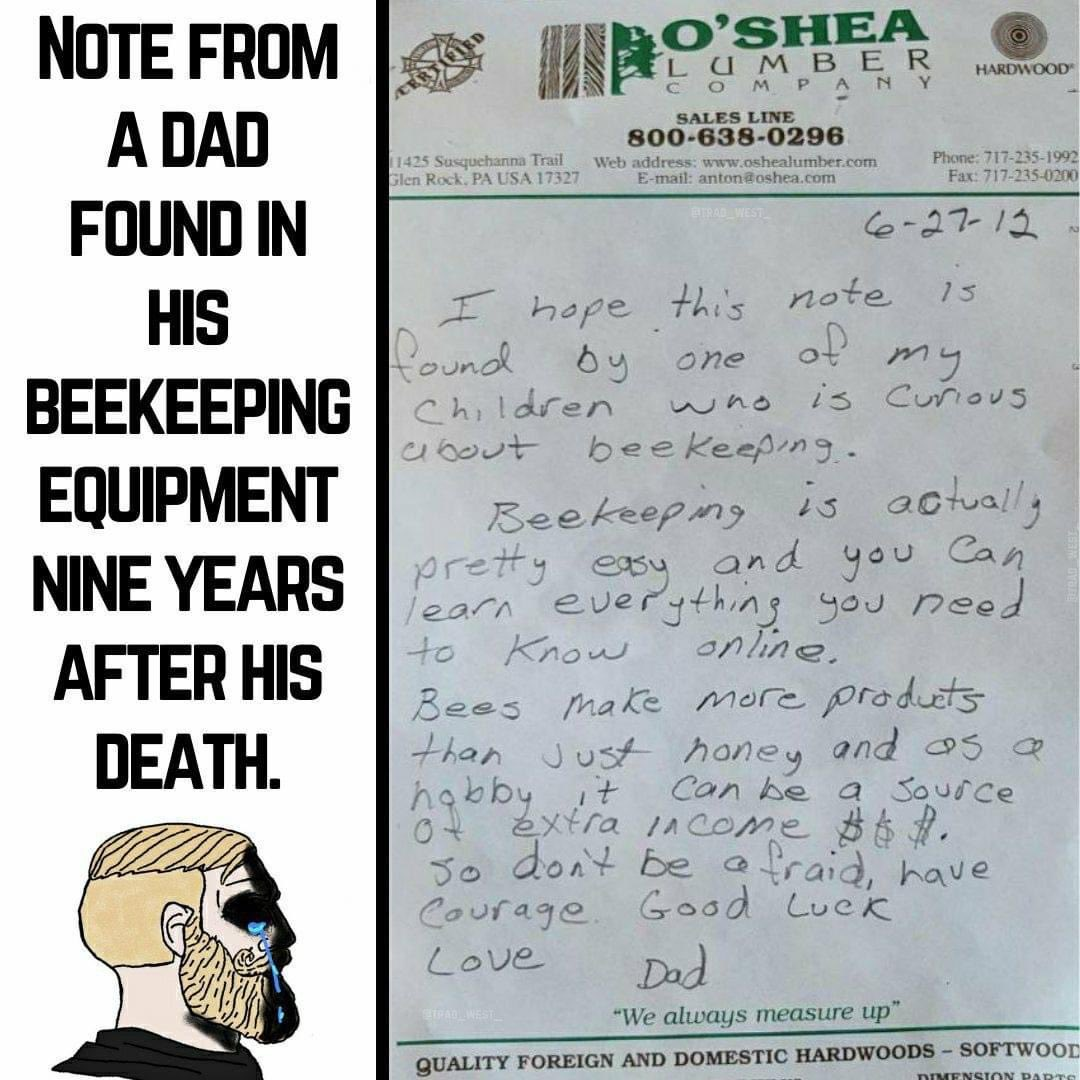 NOTE FROM
A DAD
FOUND IN
HIS
BEEKEEPING
EQUIPMENT
NINE YEARS
AFTER HIS
DEATH.
CERTIFIED
O'SHEA
LUMBER
COMPANY
HARDWOOD
SALES LINE
800-638-0296
11425 Susquehanna Trail
Glen Rock, PA USA 17327
Web address: www.oshealumber.com
E-mail: anton@oshea.com
Phone: 717-235-1992
Fax: 717-235-0200
@TRAD_WEST_
6-27-12
I hope this note is
found by one of my
children who is curious
about beekeeping.
Beekeeping is actually
pretty easy and you can
learn everything you need
to know online.
Bees make more products
than just honey and as a
hobby it can be a source
of extra income $$$.
So don't be afraid, have
courage. Good Luck
Love Dad
@TRAD_WEST_
@TRAD_WEST_
"We always measure up"
QUALITY FOREIGN AND DOMESTIC HARDWOODS – SOFTWOOD
DIMENSION PARTS